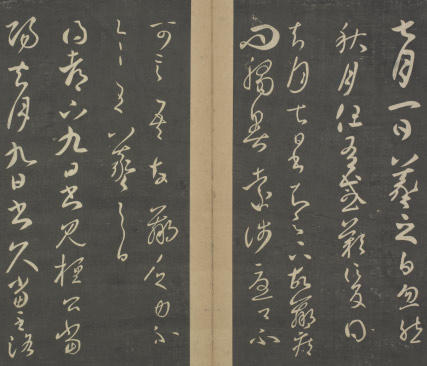 七月一日羲之白忽然
秋月但有感歎信反得
去月七日書知足下故羸疾
問觸暑遠涉憂卿不
可言吾故羸乏力不
一一王羲之白
得都下九日書見桓公當
陽去月九日書久當至洛